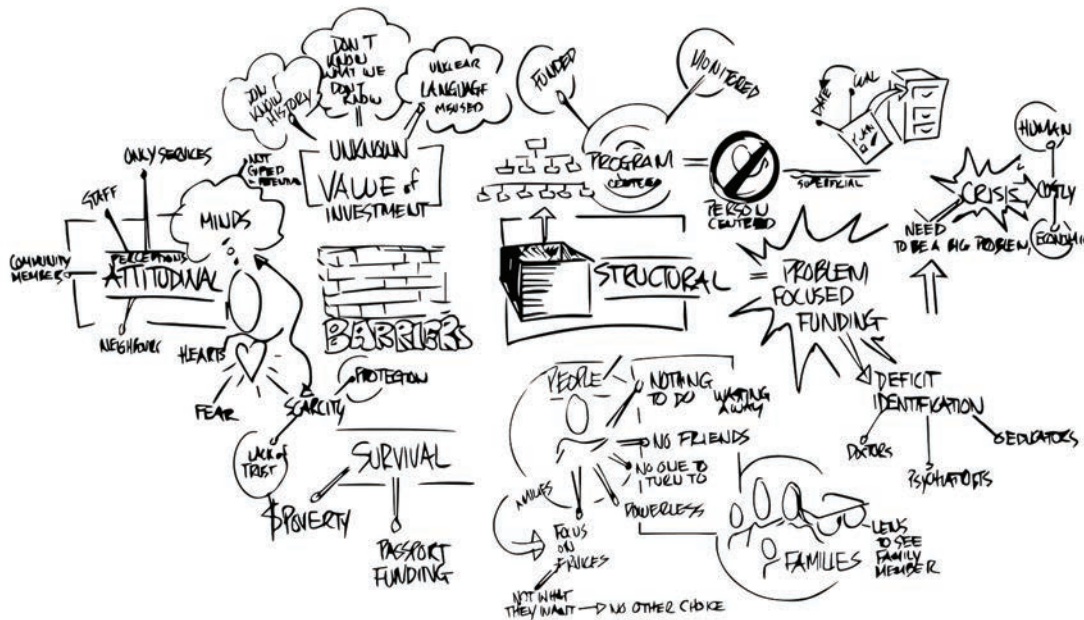 DON'T
KNOW
HISTORY
DON'T
KNOW
WHAT WE
DON'T
KNOW
UNCLEAR
LANGUAGE
MISUSED
UNKNOWN
VALUE of
INVESTMENT
ONLY SERVICES
STAFF
NOT
MINDS
COMMUNITY
MEMBER
PERCEPTIONS
ATTITUDINAL
NEIGHBOURS
HEARTS
FEAR
SCARCITY
PROTECTION
LACK of
TRUST
BARRIERS
SURVIVAL
$POVERTY
PASSPORT
FUNDING
FUNDED
MONITORED
PROGRAM
CENTERED
=
PERSON
CENTRED
SUPERFICIAL
DATE
GOAL
PLAN
STRUCTURAL
=
PROBLEM
FOCUSED
FUNDING
NEED
TO BE A BIG PROBLEM,
CRISIS
COSTLY
HUMAN
ECONOMIC
DEFICIT
IDENTIFICATION
DOCTORS
PSYCHIATRISTS
EDUCATORS
PEOPLE
NOTHING
TO DO
WASTING
AWAY
NO FRIENDS
NO ONE TO
TURN TO
POWERLESS
FOCUS
ON
NOT WHAT
THEY WANT
NO OTHER CHOICE
FAMILIES
LENS
TO SEE
FAMILY
MEMBER